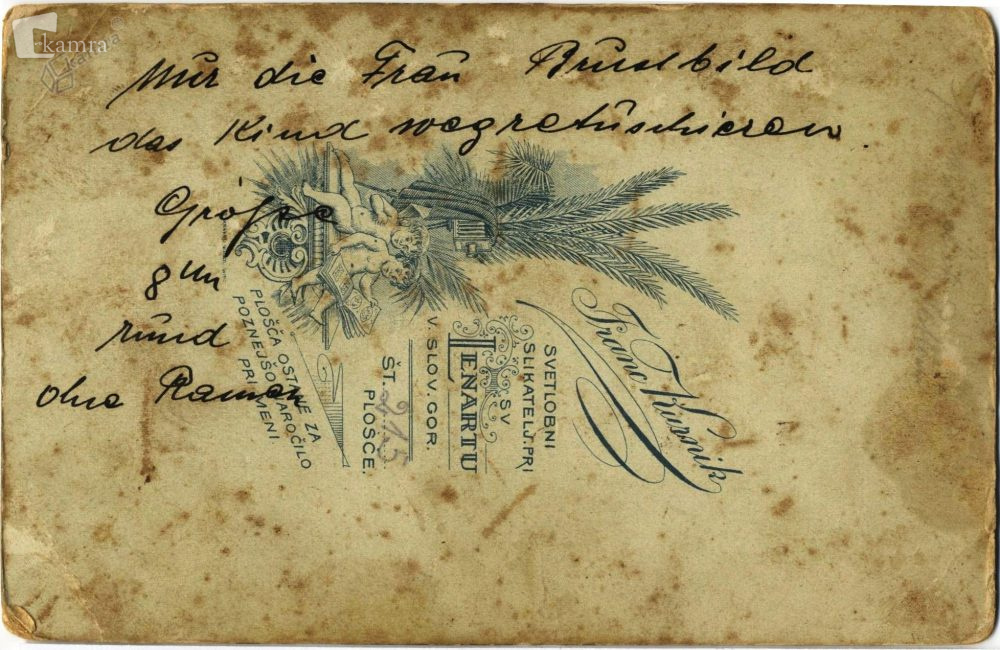 kamra
Nur die Frau Brustbild
das Kind wegretuschieren
Größe
8
rund
ohne Ramen
Franc Kurnik
SVETLOBNI
SLIKATELJ.PRI
SV
LENARTU
V. SLOV. GOR.
ŠT. 215
PLOŠČE.
PLOŠČA OSTANE ZA
POZNEJŠO NAROČILO
PRI MENI.